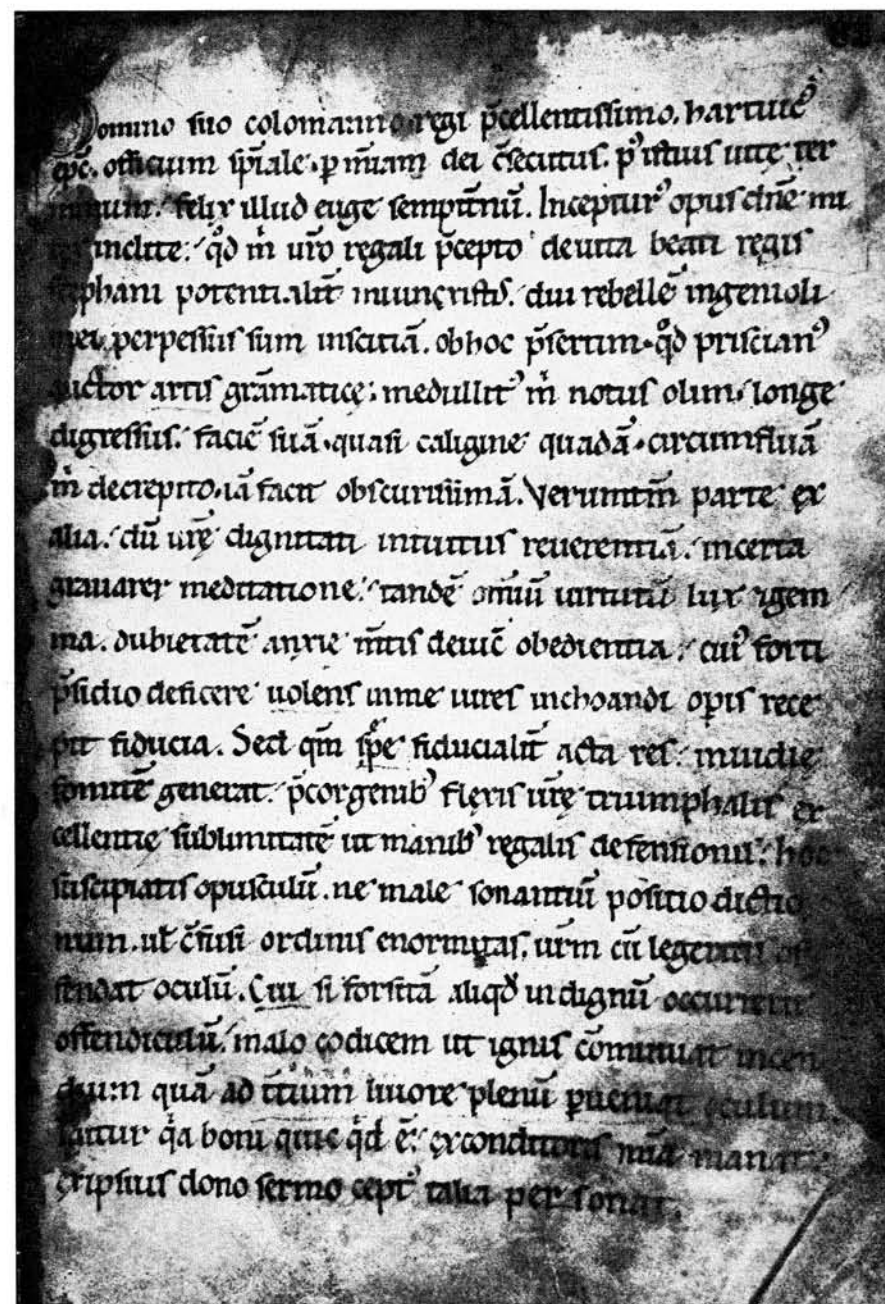 Domino suo colomanno regi p̄cellentissimo. hartuic᾽
ep̄c. officium sp̄iale. p̱ m̄iam dei c̄secutus. p᾽ istius uitę ter
minum. felix illud euge sempit̄nū. Inceptur᾽ opus dn̄e mi
inclite. qd̄ m̄ ur̄o regali p̄cepto de uita beati regis
stephani potentialit̄ iniunxistis. diu rebellē ingenioli
mei perpessus sum insciciā. ob hoc p̄sertim. qd̄ priscian᾽
auctor artis grāmaticę. medullit᾽ m̄ notus olim. longe
digressus. faciē suā. quasi caligine quadā. circumfluā
m̄ decrepito. iā facit obscurissimā. Verumtm̄ parte ex
alia. dū ur̄ę dignitati intuitus reuerentiā. incerta
grauarer meditatione. tandē omniū uirtutū lux igem
ma. dubietatē anxie m̄tis deuic̄ obedientia. cui᾽ forti
p̄sidio deficere uolens in me uires inchoandi op̱is rece
pit fiducia. Sed qm̄ sp̄e fiducialit̄ acta res. inuidię
fomitē generat. p̄cor genib᾽ flexis ur̄ę triumphalis ex
cellentie sublimitatē ut manib᾽ regalis defensionis. hoc
suscipiatis opusculū. ne male sonantiū positio dictio
num. ut̄ c̄fusi ordinis enormitas. ur̄m cū legeritis of
fendat oculū. Cui si forsitā aliqd̄ indignū occurrerit
offendiculū. malo codicem ut ignis cōminuat incen
dium quā ad t̄tium liuore plenū p̱ueniat oculum
q̄a boni quic qd̄ ē. ex conditoris m̄ia manat.
ex ipsius dono sermo cept᾽ talia personat.